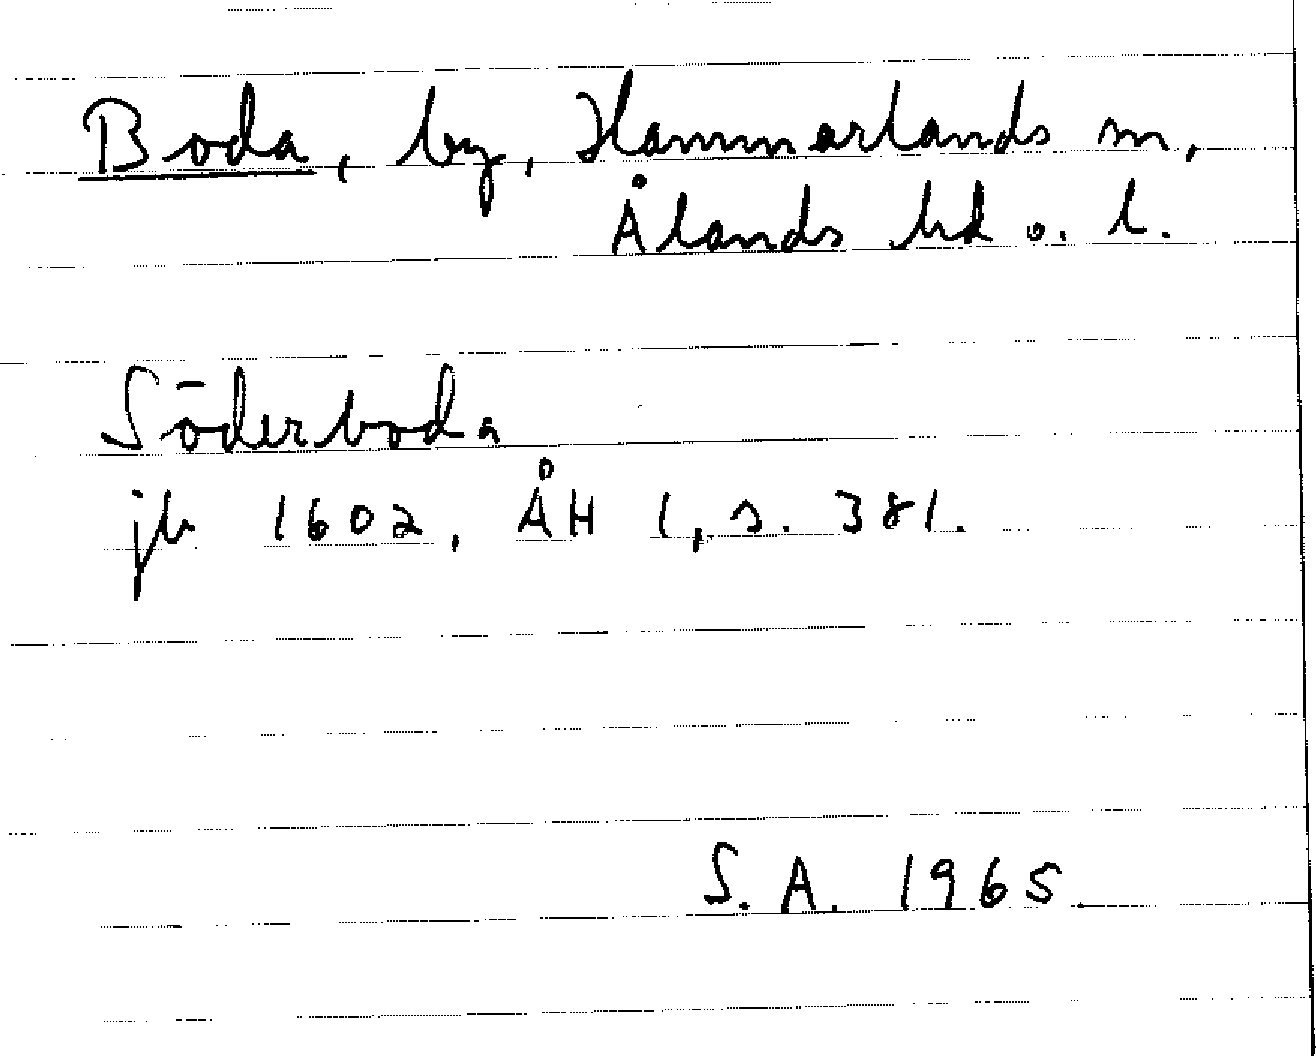 Boda, by, Hammarlands sn,
Ålands hd o. l.
Söderboda
jb 1602, ÅH 1, s. 381.
S. A. 1965.